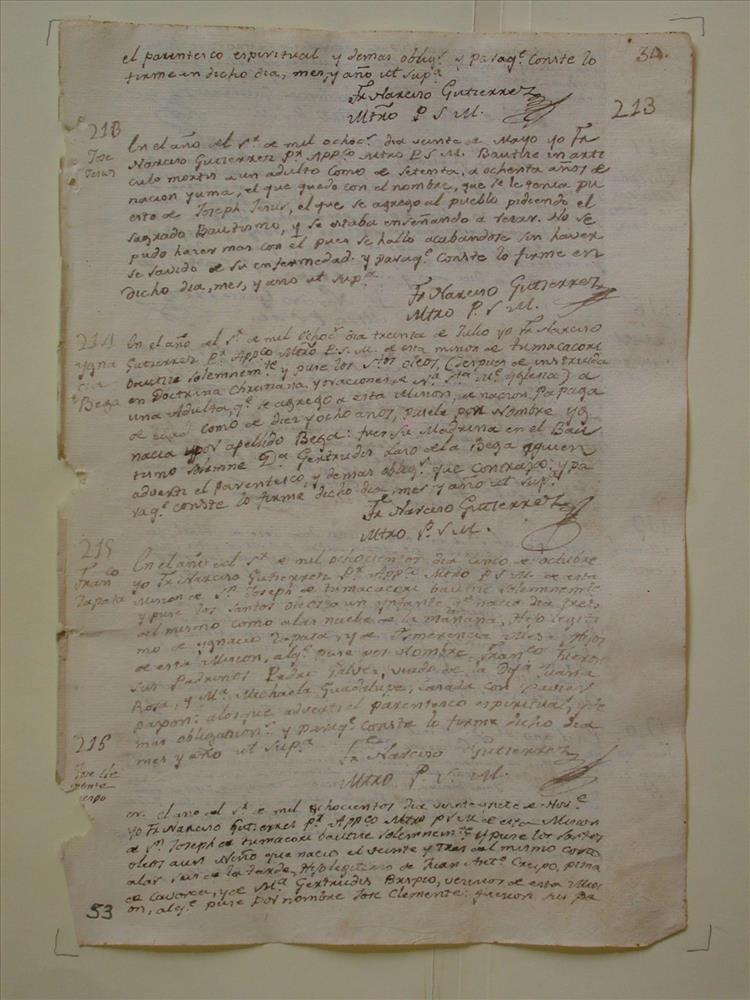 34
el parentesco espiritual y demas oblig.s y paraq.e conste lo
firme en dicho dia, mes, y año ut sup.a
Fr Narciso Gutierrez
Mtrõ P. S M.
213
213
Jose
Jesus
En el año del S.r de mil ochoc.s dia veinte de Mayo yo Fr
Narciso Gutierrez P.r App.co Mtro P. S M. Bautize in arti
culo mortis a un adulto como de setenta, a ochenta años de
nacion yuma, el que quedo con el nombre, que se le tenia pu
esto de Joseph Jesus, el que se agrego al pueblo pidiendo el
sagrado Bautismo, y se estaba enseñando a rezar. No se
pudo hazer mas con el pues se hallo acabandose sin haver
se savido de su enfermedad. y paraq.e conste lo firme en
dicho dia, mes, y año ut sup.a
Fr Narciso Gutierrez
Mtro P. S M.
214
ygna
cia
Bega
En el año del S.r de mil ochoc.s dia treinta de Julio yo Fr Narciso
Gutierrez P.r App.co Mtrõ P. S. M. de esta mision de tumacacori
bautize solemnem.te y puse los S.tos oleos, (despues de instruida
en Doctrina Christiana, y oraciones, de N.ra S.ta M.e yglesia) a
una Adulta, q.e se agrego a esta Mision, de nacion Papaga
de edad como de diez y ocho años, pusele por Nombre yg
nacia y por apellido Bega: fue su Madrina en el Bau
tismo solemne D.a Gertrudis Laro de la Bega a quien
adverti el parentesco, y demas oblig.s que contrajo; y pa
raq.e conste lo firme dicho dia mes y año ut sup.a
Fr Narciso Gutierrez
Mtro P. S M.
215
Fran.co
Zapata
En el año del S.r de mil ochocientos dia cinco de octubre
yo Fr Narciso Gutierrez P.r App.co Mtro P S M. de esta
Mision de S.n Joseph de tumacacori bautize solemnemente
y puse los santos oleos a un ynfante q.e nacio dia tres
del mismo como a las nueve de la mañana, Hijo legiti
mo de ygnacio Zapata, y de Emerencia Hijos
de esta Mision, al q.e puse por Nombre Fran.co fueron
sus Padrinos Pedro Galves, viudo de la Juana
Rosa, y M.a Michaela Guadalupe, casada con Xavier
a los que adverti el parentesco espiritual, y de
mas obligacion.s y paraq.e conste lo firme dicho dia
mes y año ut sup.a
Fr Narciso Gutierrez
Mtro P. S. M.
216
Jose Cle
mente
Crespo
en el año del S.r de mil ochocientos dia veinte y siete de Nov.e
yo Fr Narciso Gutierrez P.r App.co Mtro P S M de esta Mision
de S.n Joseph de tumacori bautize solemnem.te y puse los santos
oleos a un Niño que nacio el veinte y tres del mismo como
a las seis de la tarde, Hijo legitimo de Juan Ant.o Crespo, pima
de Caborca, y de M.a Gertrudis Brixio, vecinos de esta Misi
on, al q.e puse por nombre Jose Clemente: fueron sus Pa
53